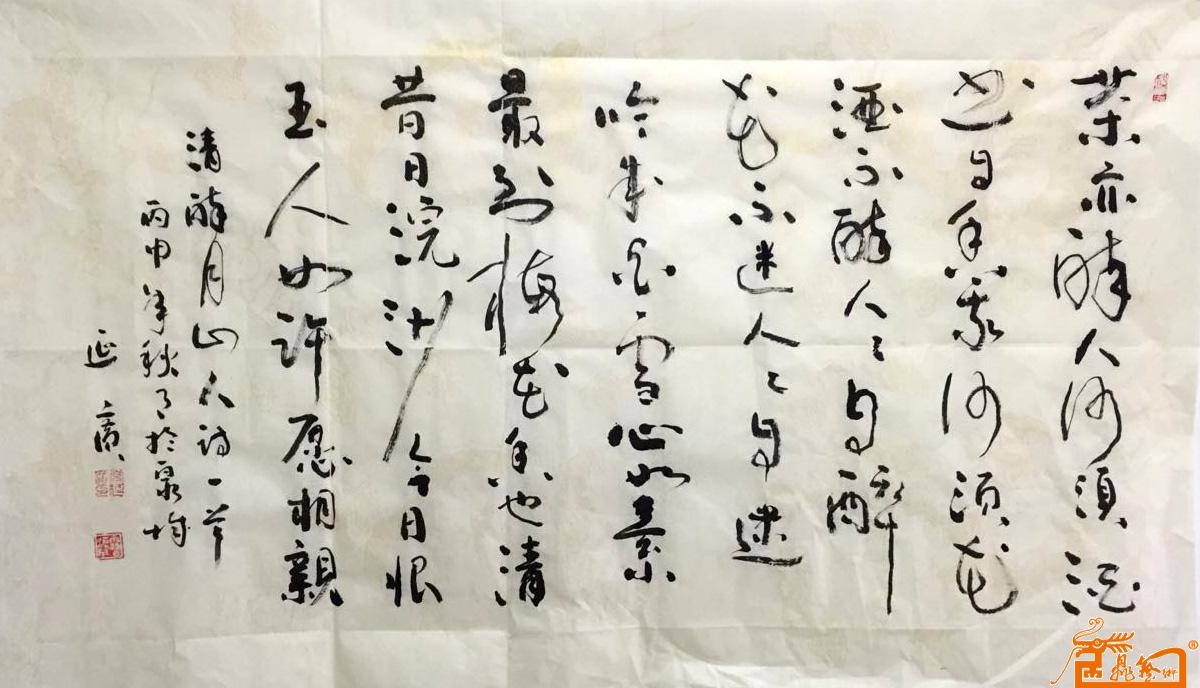 茶亦醉人何須酒
书自香我何須花
酒不醉人々自醉
花不迷人々自迷
吟成白雪心如素
最到梅花香也清
昔日浣沙今日恨
玉人如许愿相親
清醉月山人诗一首
丙申年秋月於泉城
延廣